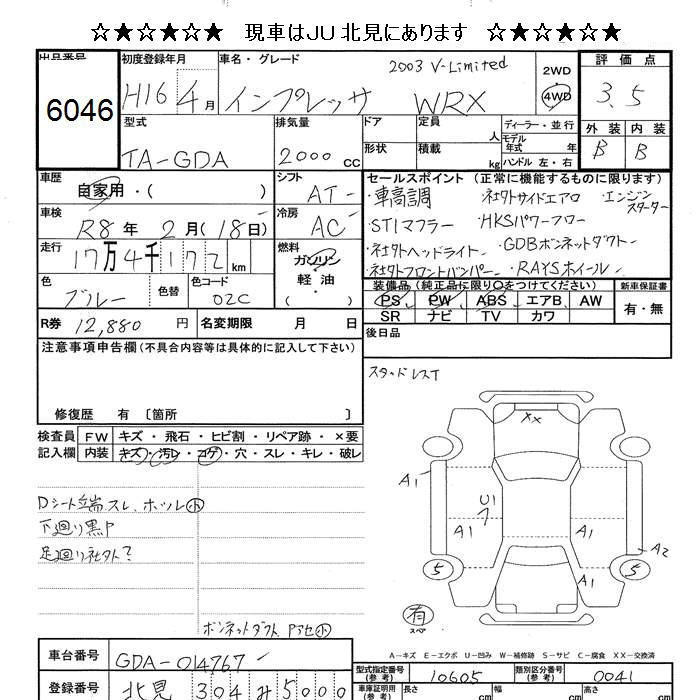 ☆★☆★☆★ 現車はJU北見にあります ☆★☆★☆★
出品番号 初度登録年月 車名・グレード 2003 V-Limited 2WD 評価点
6046 H16 4月 インプレッサ WRX 4WD 3.5
型式 排気量 ドア 定員 人 ディーラー・並行 外装 内装
TA-GDA 2000cc 形状 積載 kg モデル年式 年 ハンドル 左・右 B B
車歴 シフト セールスポイント (正常に機能するものに限ります)
自家用・( ) AT- ・車高調 社外サイドエアロ ・エンジンスターター
車検 冷房 ・STIマフラー ・HKSパワーフロー
R8年 2月(18日) AC- ・社外ヘッドライト ・GDBボンネットダクト
走行 燃料 社外フロントバンパー ・RAYSホイール
17万4千172km ガソリン 軽油
色 色替 色コード ・( ) 装備品(純正品に限り○をつけてください) 新車保証書
ブルー 02C PS PW ABS エアB AW 有・無
R券 12,880円 名変期限 月 日 SR ナビ TV カワ
注意事項申告欄(不具合内容等は具体的に記入して下さい) 後日品
スタッドレスT
修復歴 有 〔箇所 〕
検査員 FW キズ・飛石・ヒビ割・リペア跡・×要
記入欄 内装 キズ・汚レ・コゲ・穴・スレ・キレ・破レ
××
A1
U1
A1 A1
A2
5 A1 5
Dシート端スレ、ホツレ小
下廻り黒P
足廻り社外?
有
スペア
ボンネットダクト、Pアセ小
A-キズ E-エクボ U-凹み W-補修跡 S-サビ C-腐食 XX-交換済
車台番号 GDA-014767 型式指定番号(参考) 10605 類別区分番号(参考) 0041
登録番号 北見 304 み 5000 車庫証明用(参考) 長さ cm 幅 cm 高さ cm